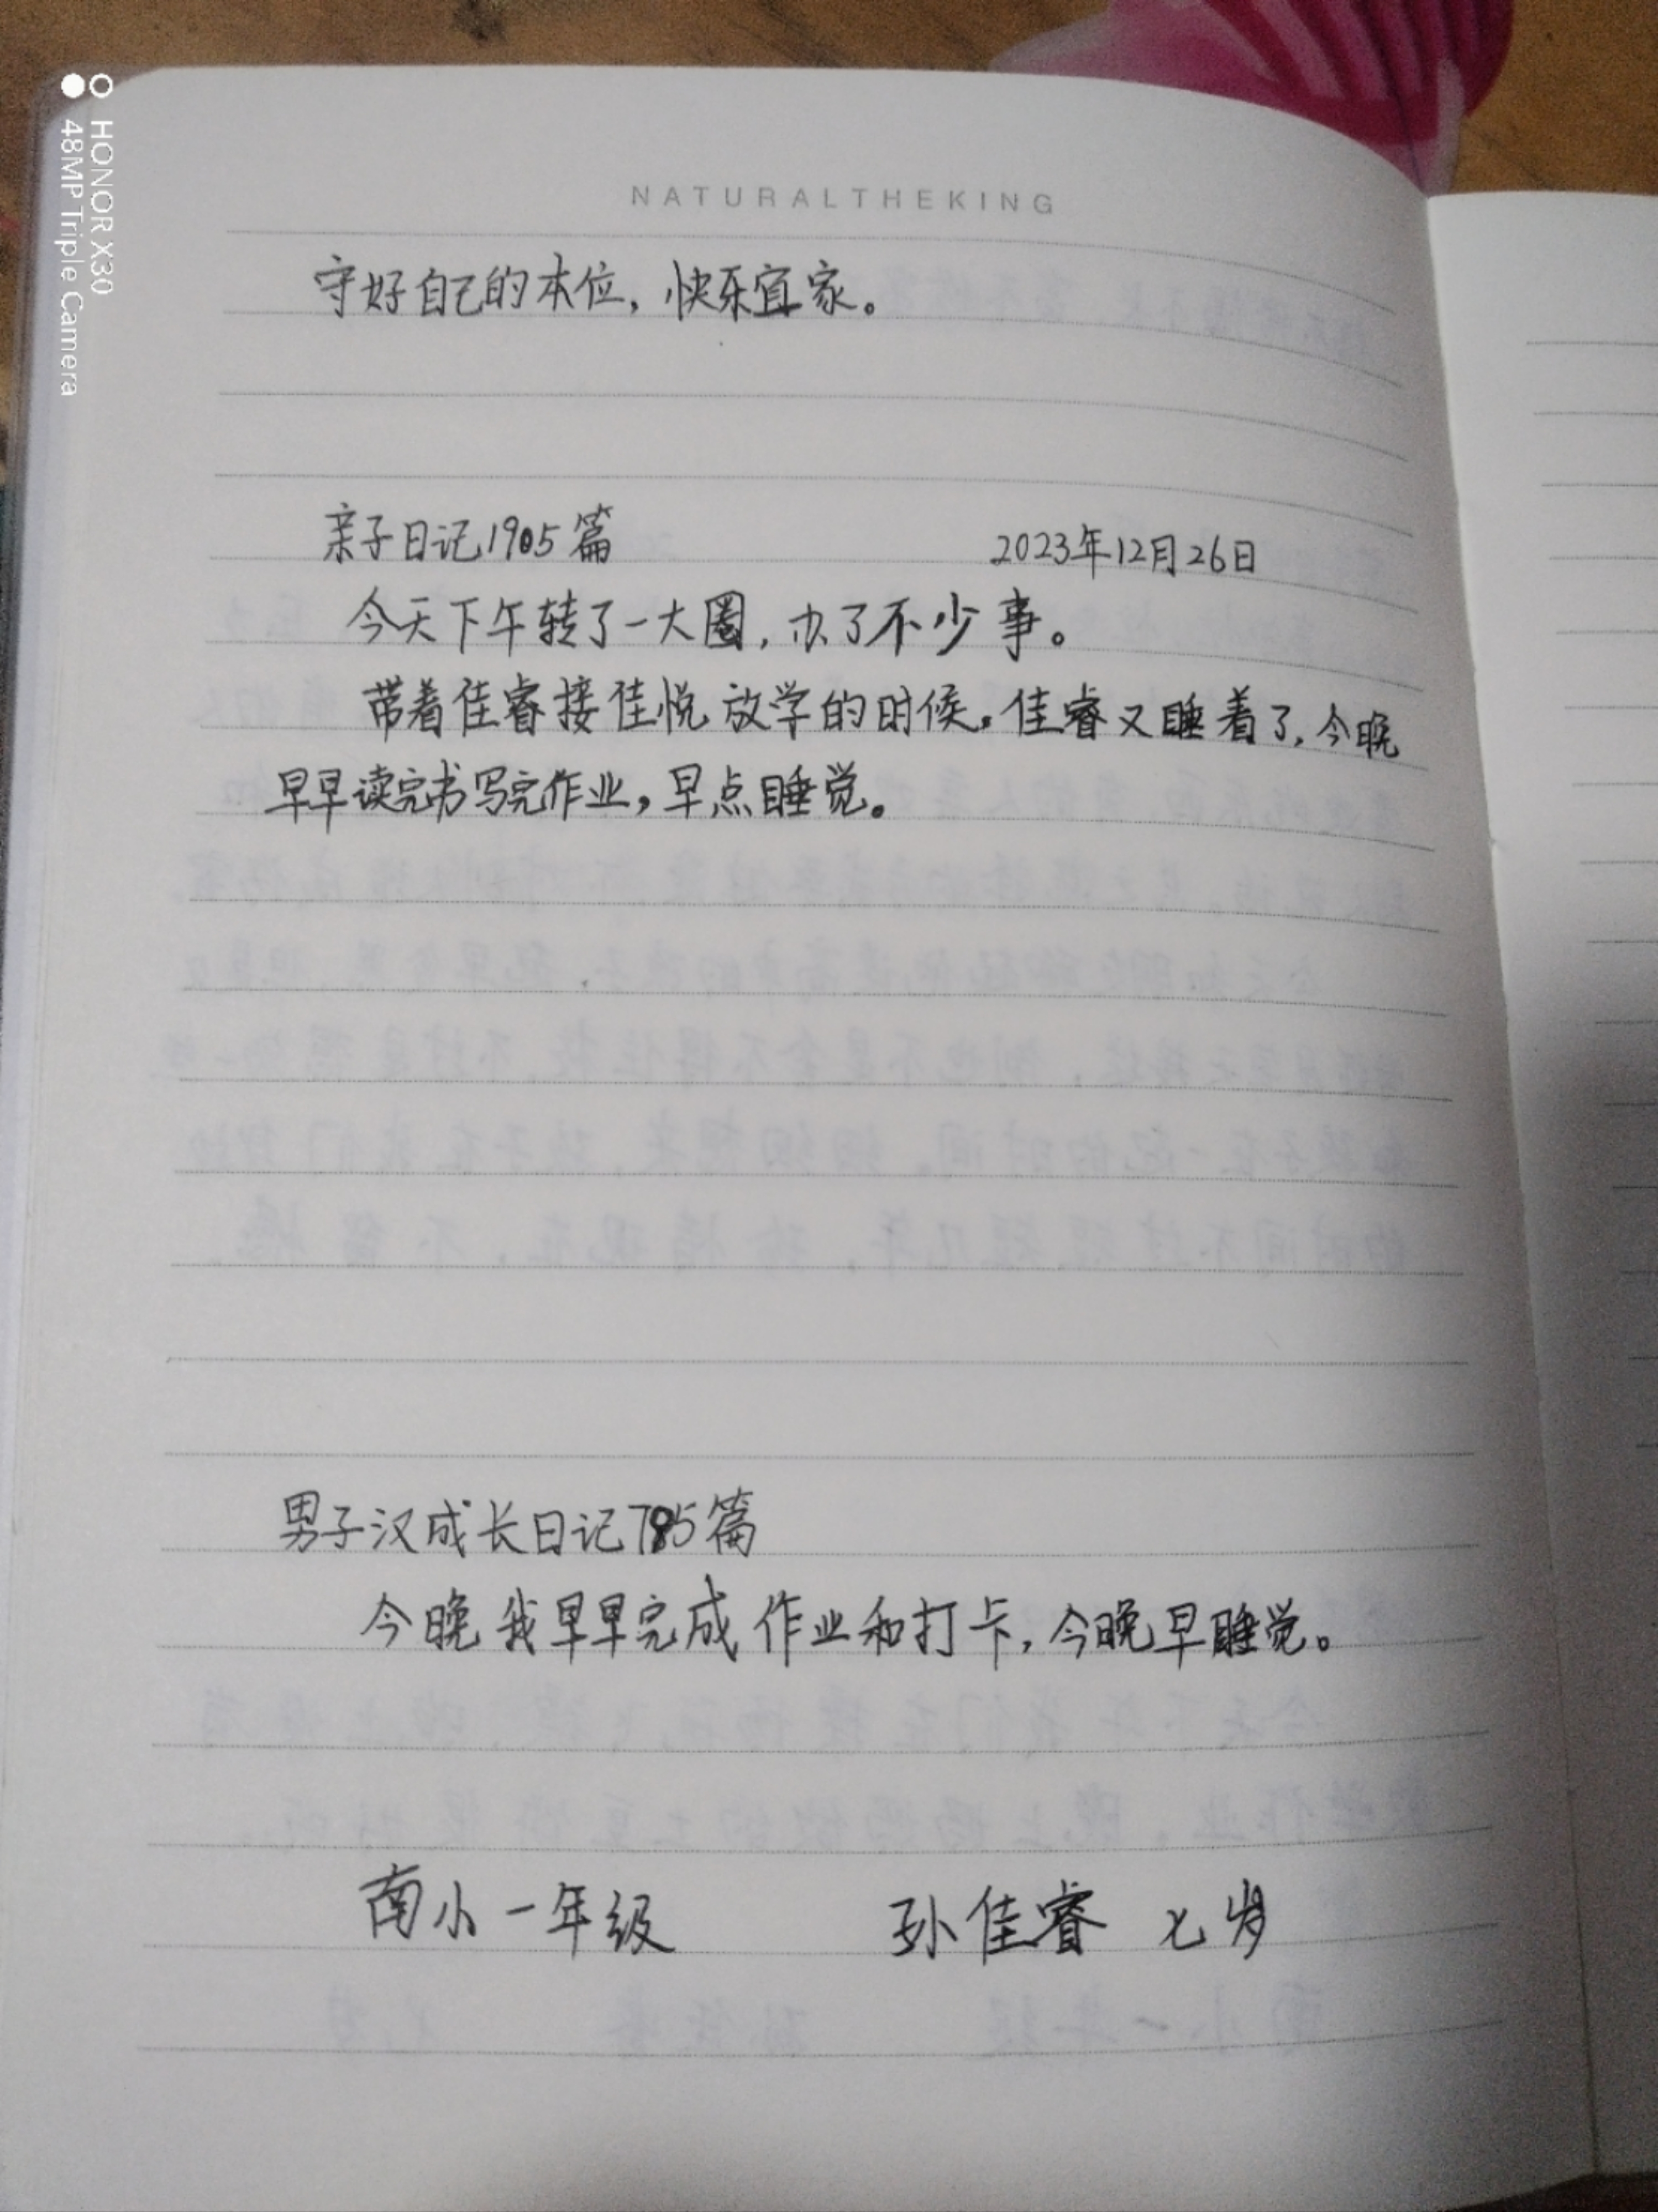 HONOR X30
48MP Triple Camera
NATURALTHEKING
守好自己的本位，快乐宜家。
亲子日记1905篇 2023年12月26日
今天下午转了一大圈，办了不少事。
带着佳睿接佳悦放学的时候。佳睿又睡着了，今晚
早早读完书写完作业，早点睡觉。
男子汉成长日记785篇
今晚我早早完成作业和打卡，今晚早睡觉。
南小一年级 孙佳睿 七岁